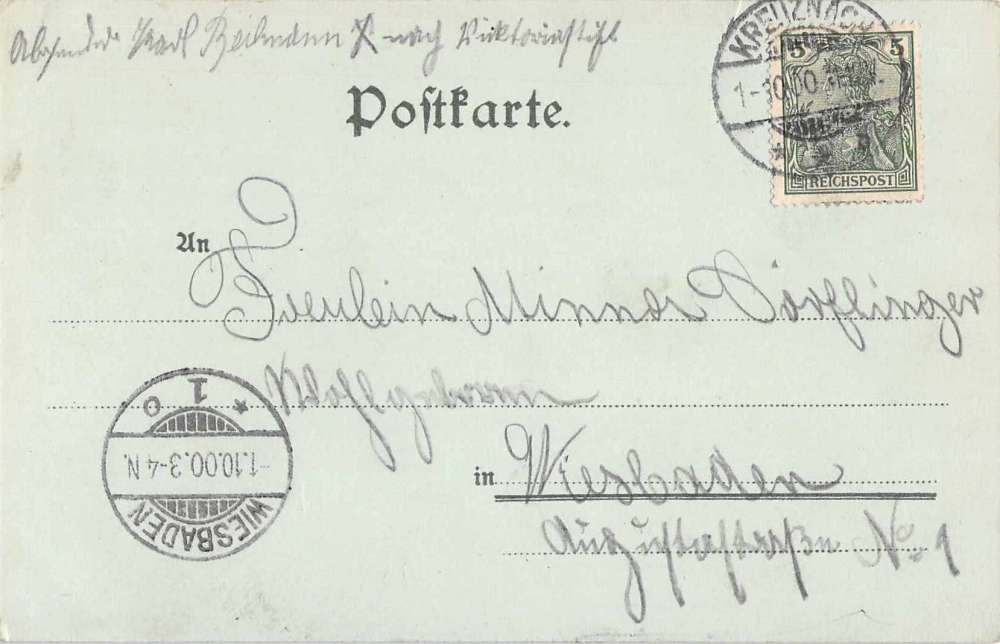 Absender Karl Beilmann X nach Viktoriastift
Postkarte.
KREUZNACH
1-10.00
5 5
REICHSPOST
An
Freulein Minna Dörflinger
Wohlgeboren
in Wiesbaden
Augustastraße No 1
WIESBADEN
-1.10.00.3-4 N.
* 1 c